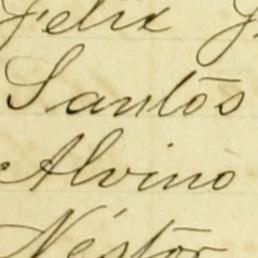 Felix J
Santos
Alvino
Néstor